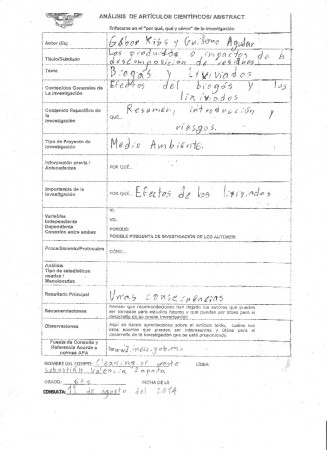 ANÁLISIS DE ARTÍCULOS CIENTÍFICOS/ ABSTRACT
Enfocarse en el "por qué, qué y cómo" de la investigación
Autor (Es) Gabor Kiss y Guillermo Aguilar
Título/Subtítulo Los productos e impactos de la descomposicion de residuos
Tema Biogás y Lixiviados
Contenidos Generales de La investigación Efectos del biogás y los lixiviados
Contenido Específico de la investigación QUÉ... Resumen, introducción y riesgos.
Tipo de Proyecto de investigación Medio Ambiente.
Información previa / Antecedentes POR QUÉ...
Importancia de la investigación POR QUÉ... Efectos de los lixiviados
Variables
Independiente
Dependiente
Conexión entre ambas
VI:
VD:
PORQUE:
POSIBLE PREGUNTA DE INVESTIGACIÓN DE LOS AUTORES:
Procedimiento/Protocolos CÓMO...
Análisis
Tipo de estadísticos usados /
Resultado Principal Unas consecuencias
Recomendaciones
Revisar que recomendaciones han dejado los autores que puedan ser tomadas para estudios futuros y que puedan ser útiles para el desarrollo de su propia investigación
Observaciones
Aquí se harán apreciaciones sobre el artículo leído, cuáles son esos aportes que pueden ser interesantes y útiles para el desarrollo de la investigación que se está proponiendo.
Fuente de Consulta y Referencia Acorde a normas APA
NOMBRE DEL EQUIPO: Cleaning of waste
Sebastián Valencia Zapata
GRADO: FECHA DE LA
CONSULTA: 11 de agosto del 2014